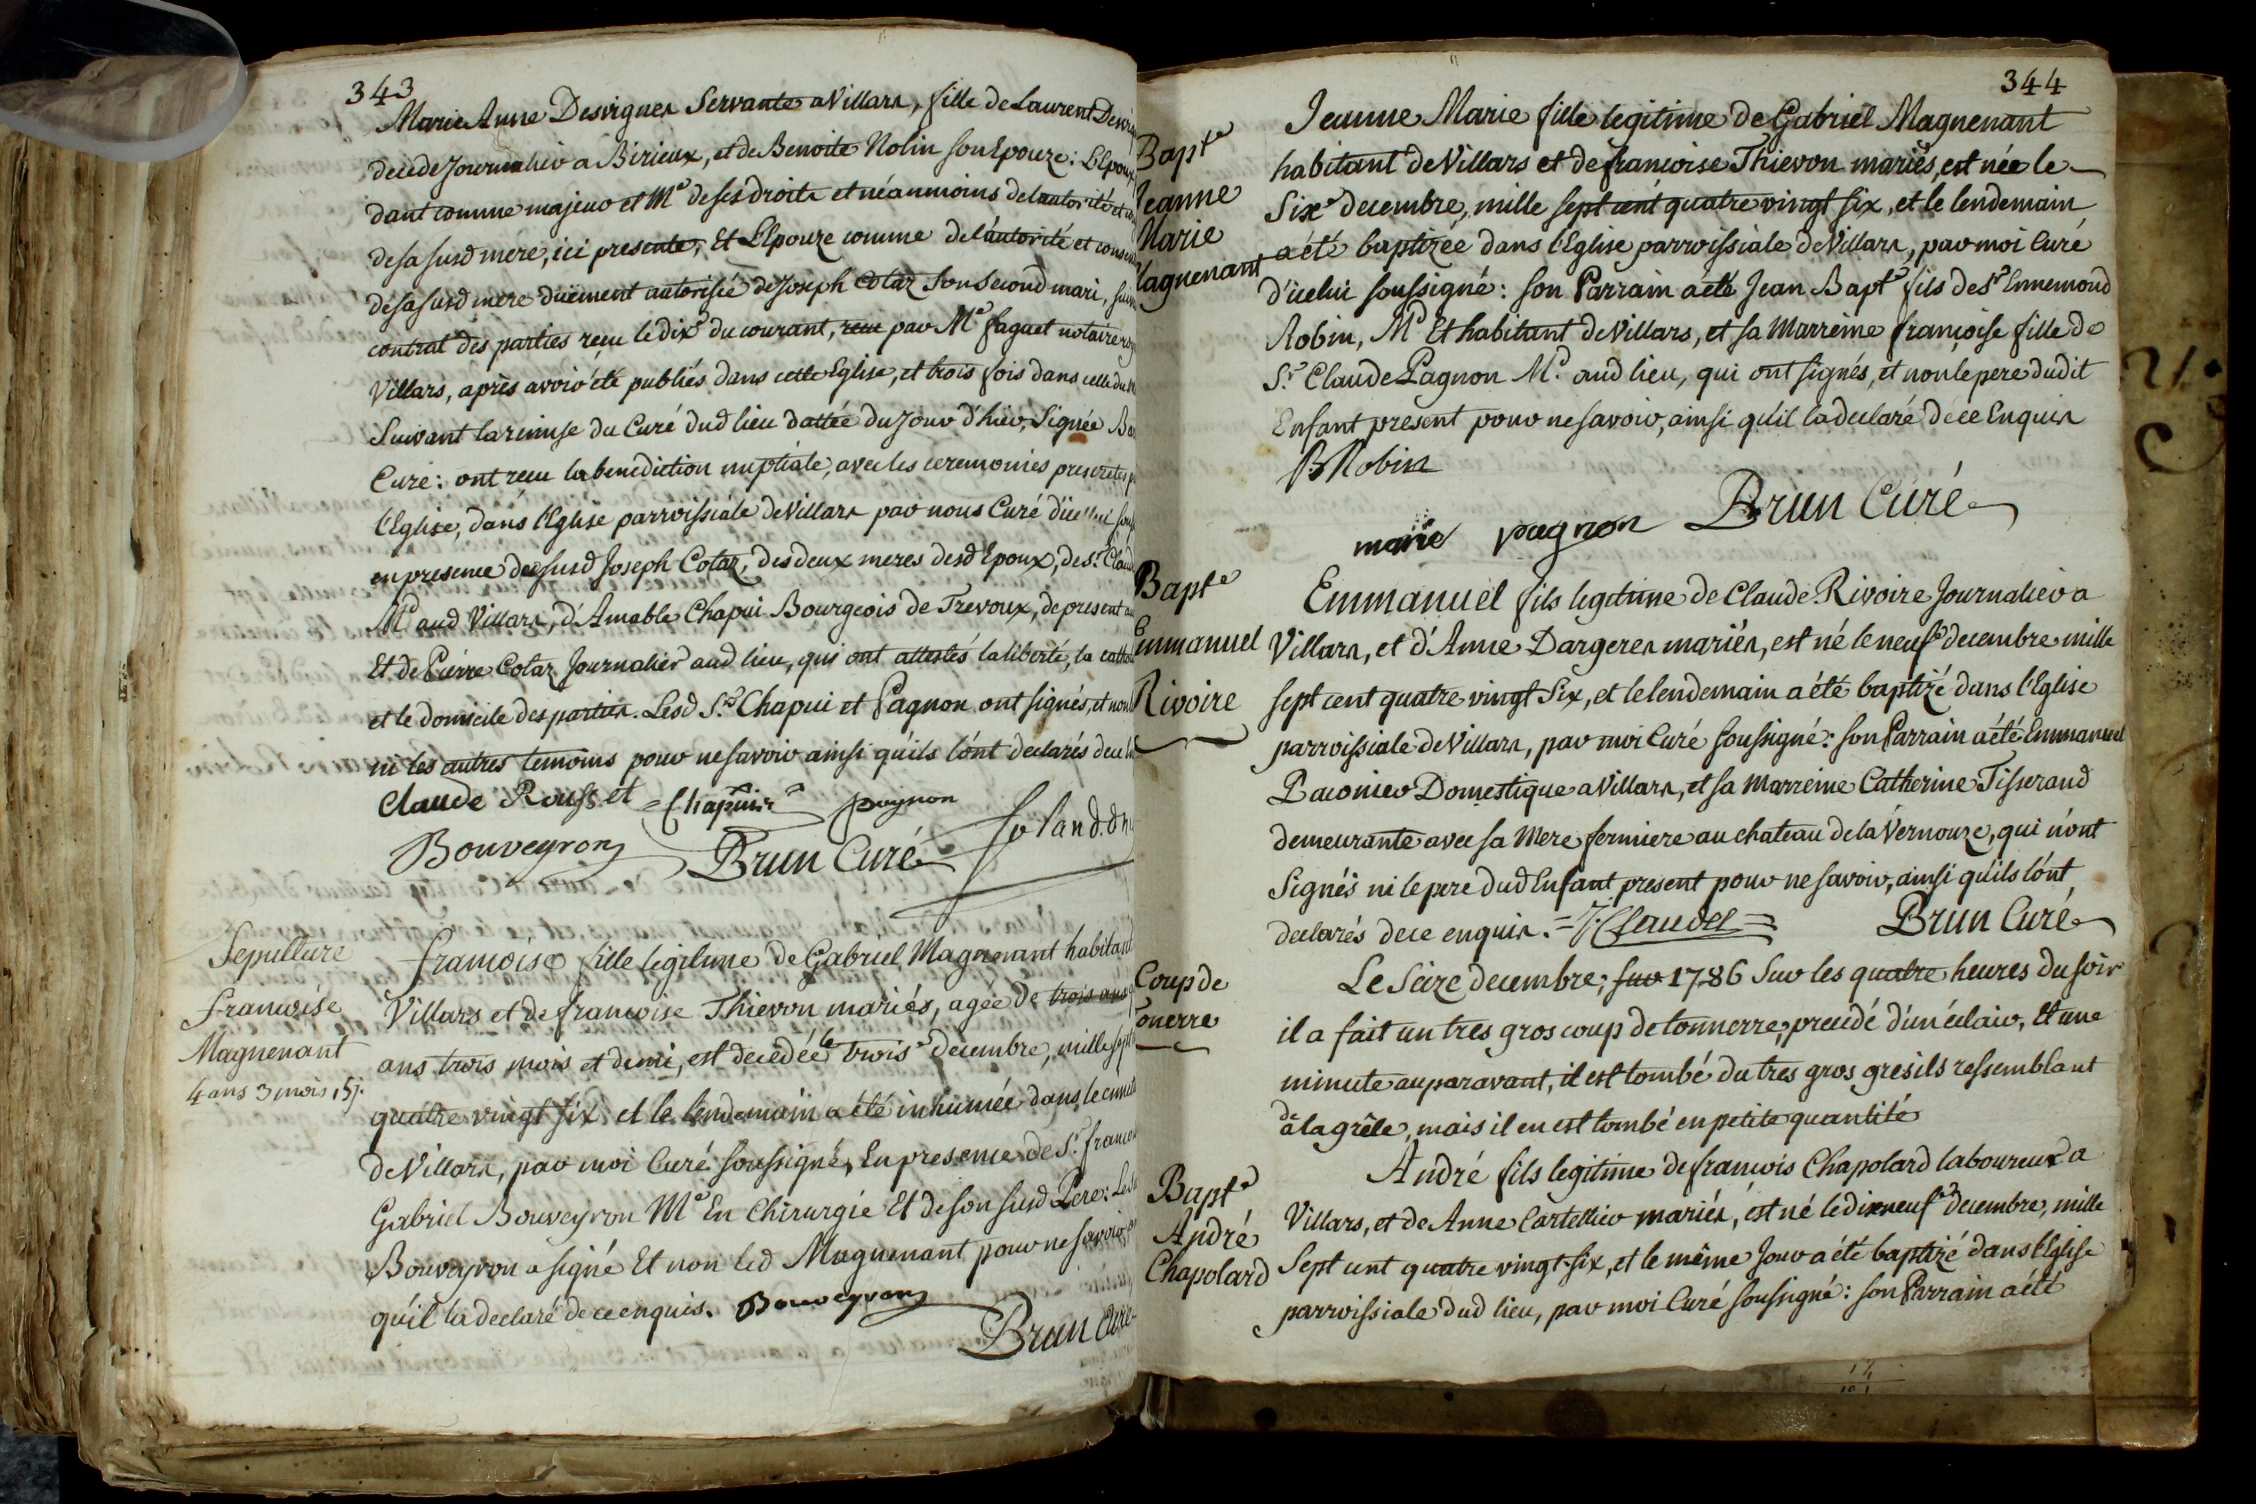 343
Marie Anne Desvignes Servante a Villars, fille de Laurent
decede Journalier a Birieux, et de Benoite Nolin son Epouze: L'Epoux
dant comme majeur et Me de ses droits et néanmoins de l'autorité et
de sa susd mere, ici presente, Et L'Epouze comme de l'autorité et
de sa susd mere düement autorisée de Joseph Cotaz son second mari,
contrat des parties reçu le dixe du courant, reçu par Me faguet notaire
Villars, après avoir été publiés dans cette Eglise, et trois fois dans celle du
Suivant la remise du Curé dud lieu dattée du Jour d'hier, Signée
Curé: ont reçu la benediction nuptiale, avec les ceremonies prescrites
l'Eglise, dans l'Eglise parroissiale de Villars par nous Curé d'icellui
en presence dud susd Joseph Cotaz, des deux meres desd Epoux, de Sr
Md aud Villars, d'Amable Chapui Bourgeois de Trevoux, de present
Et de Pierre Cotaz Journalier aud lieu, qui ont attestés la liberté, la
et le domicile des parties. Lesd Srs Chapui et Pagnon ont signés, et non
ni les autres temoins pour ne savoir ainsi qu'ils l'ont declarés
Claude Rousset Chapuis pagnon
Bouveyron Brun Curé
Sepulture
francoise
Magnenant
4 ans 3 mois 15 j.
francoise fille legitime de Gabriel Magnenant habitant
Villars et de francoise Thievon mariés, agée de trois ans
ans trois mois et demi, est decedée le troise decembre, mille sept
quatre vingt six et le lendemain a été inhumée dans le
de Villars, par moi Curé soussigné, En presence de Sr
Gabriel Bouveyron Me En Chirurgie Et de son susd Pere: Led
Bouveyron a signé Et non led Magnenant pour ne savoir
qu'il la declaré de ce enquis. Bouveyron
Brun Curé
344
Bapte
Jeanne
Marie
Magnenant
Jeanne Marie fille legitime de Gabriel Magnenant
habitant de Villars et de francoise Thievon mariés, est née le
Sixe decembre, mille sept cent quatre vingt six, et le lendemain
a été baptizée dans l'Eglise parroissiale de Villars, par moi Curé
d'icelui soussigné: son Parrain a été Jean Bapte fils de Sr Ennemond
Robin, Md Et habitant de Villars, et sa Marreine françoise fille de
Sr Claude Pagnon Md aud lieu, qui ont signés, et non le pere dudit
Enfant present pour ne savoir, ainsi qu'il la declaré de ce Enquis
BRobin
marie pagnon Brun Curé
Bapte
Emmanuel
Rivoire
Emmanuel fils legitime de Claude Rivoire Journalier a
Villars, et d'Anne Dargeres mariés, est né le neufe decembre mille
sept cent quatre vingt Six, et le lendemain a été baptizé dans l'Eglise
parroissiale de Villars, par moi Curé soussigné: son Parrain a été Emmanuel
Domestique a Villars, et sa Marreine Catherine Tisserand
demeurante avec sa Mere fermiere au chateau de la Vernouze, qui n'ont
Signés ni le pere dud Enfant present pour ne savoir, ainsi qu'ils l'ont
declarés de ce enquis. Brun Curé
Coup de
Tonerre
Le Seize decembre, sur 1786 Sur les quatre heures du soir
il a fait un tres gros coup de tonnerre, precedé d'un éclair, Et une
minute auparavant, il est tombé du tres gros gresils ressemblant
de
a la grêle, mais il en est tombé en petite quantité
Bapte
André
Chapolard
André fils legitime de francois Chapolard laboureur a
Villars, et de Anne Cartellier mariés, est né le dixneufe decembre, mille
Sept cent quatre vingt-six, et le même Jour a été baptizé dans l'Eglise
parroissiale dud lieu, par moi Curé soussigné: son Parrain a été